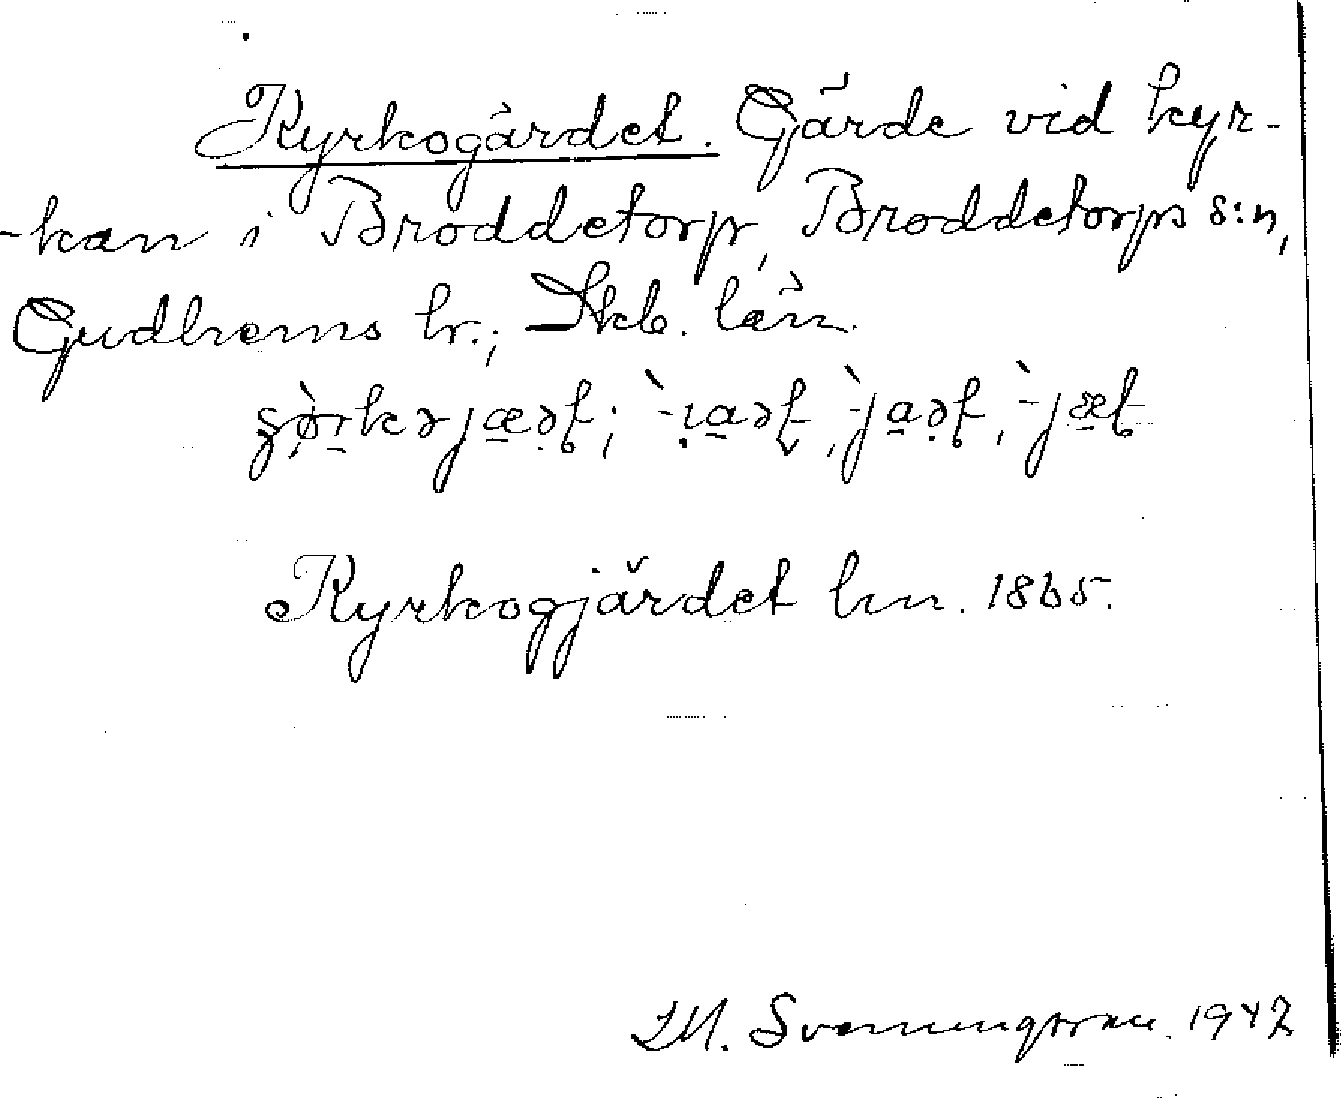 Kyrkogärdet. Gärde vid kyr-
-kan i Broddetorp, Broddetorps s:n,
Gudhems hr., Skb. län.
Kyrkogjärdet hm. 1865.
M. Svenningsson 1942